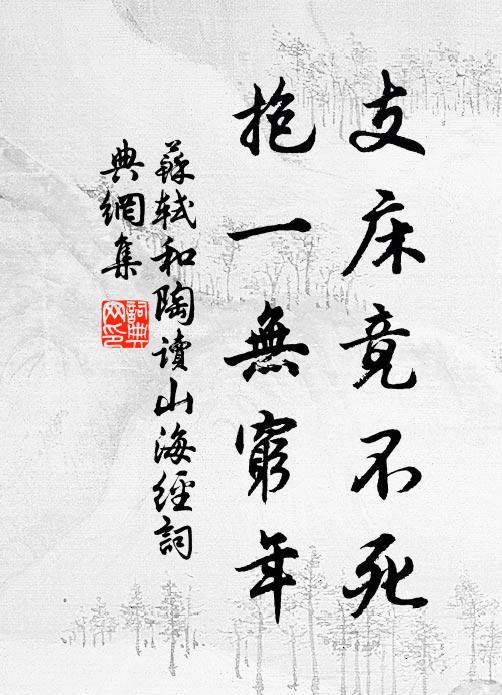 支床竟不死
抱一無窮年
蘇軾和陶讀山海經詞
典網集
詞典網印